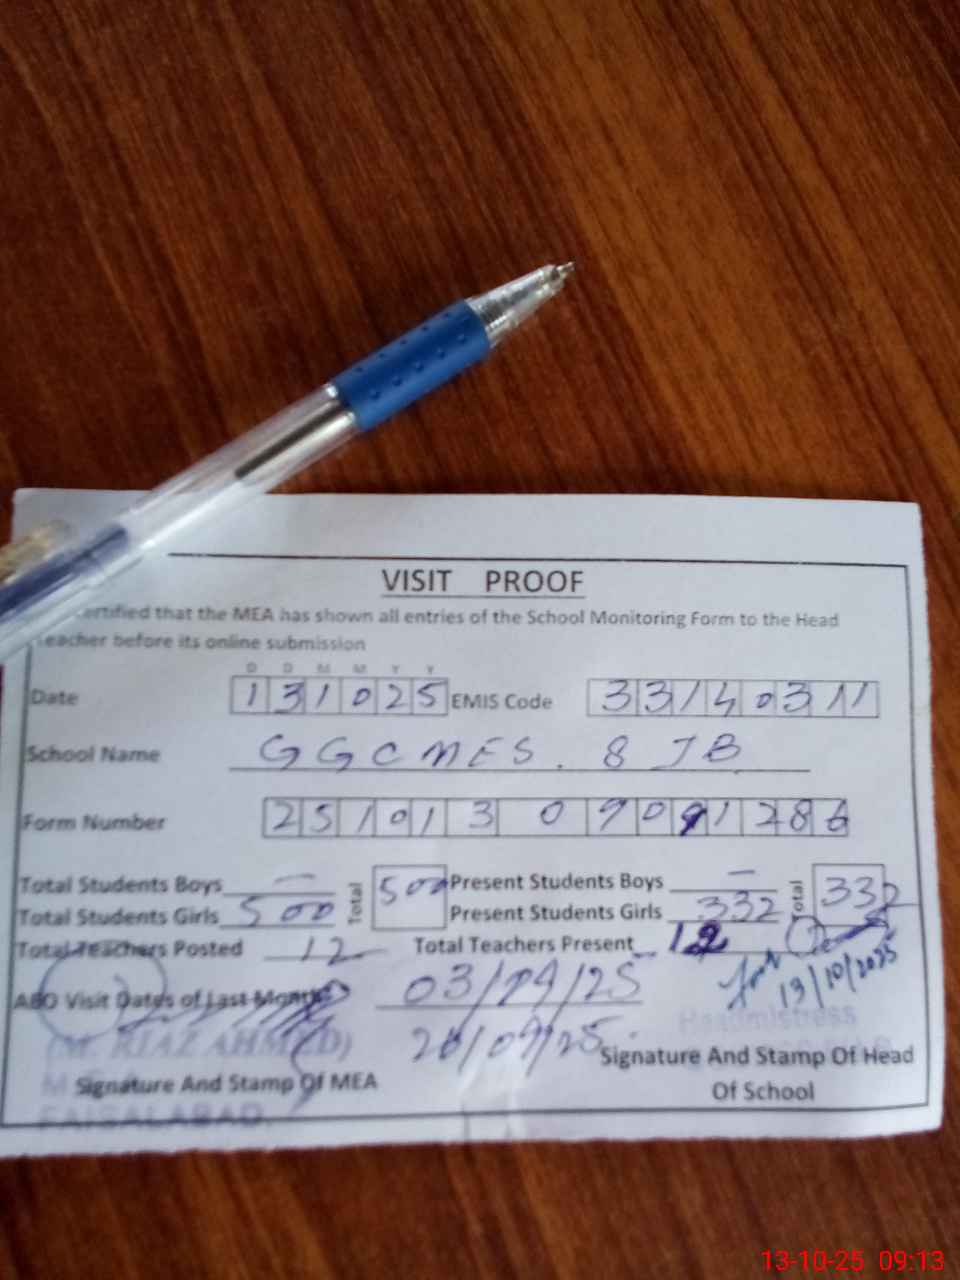 VISIT PROOF
ertified that the MEA has shown all entries of the School Monitoring Form to the Head
eacher before its online submission
D D M M Y Y
Date 131025 EMIS Code 33140311
School Name GGCMES. 8 JB
Form Number 25101309091286
Total Students Boys — Total 500 Present Students Boys — Total 332
Total Students Girls 500 Present Students Girls 332
Total Teachers Posted 12 Total Teachers Present 12
13/10/2025
AEO Visit Dates of Last Month 03/09/25
Headmistress
(M. RIAZ AHMED) 26/09/25
Signature And Stamp Of Head
Signature And Stamp Of MEA
Of School
M.E.A
FAISALABAD.
13-10-25 09:13